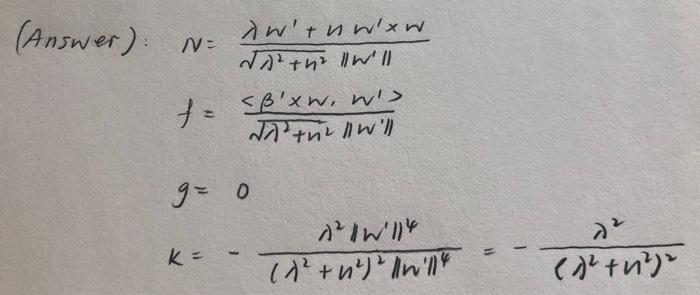 (Answer): N = (λw' + u w'×w) / (√(λ²+u²) ‖w'‖)
f = <β'×w, w'> / (√(λ²+u²) ‖w'‖)
g = 0
K = - λ²‖w'‖⁴ / ((λ²+u²)² ‖w'‖⁴) = - λ² / (λ²+u²)²